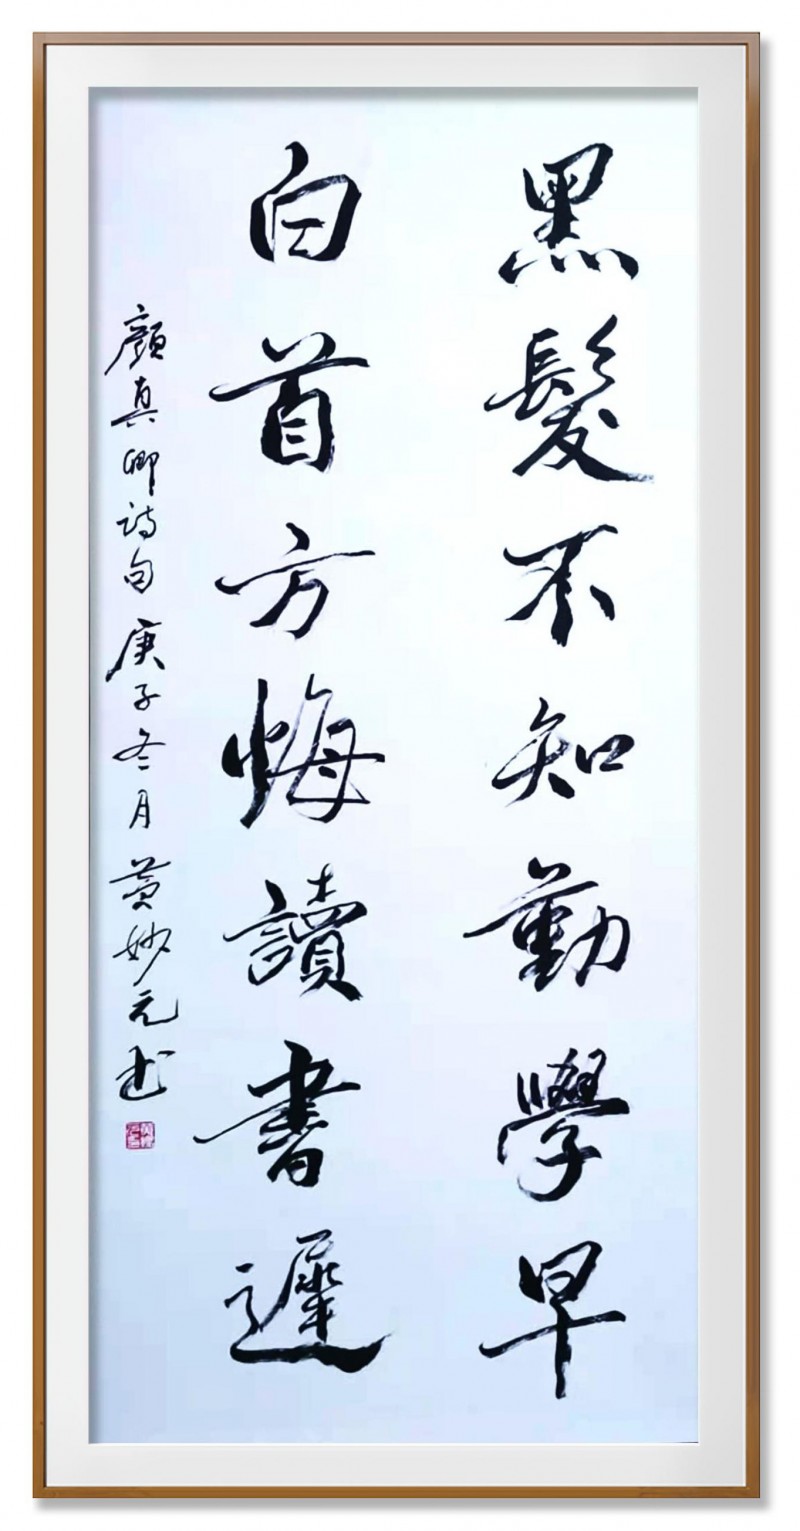 黑髮不知勤學早
白首方悔讀書遲
顏真卿诗句庚子冬月黄妙元书